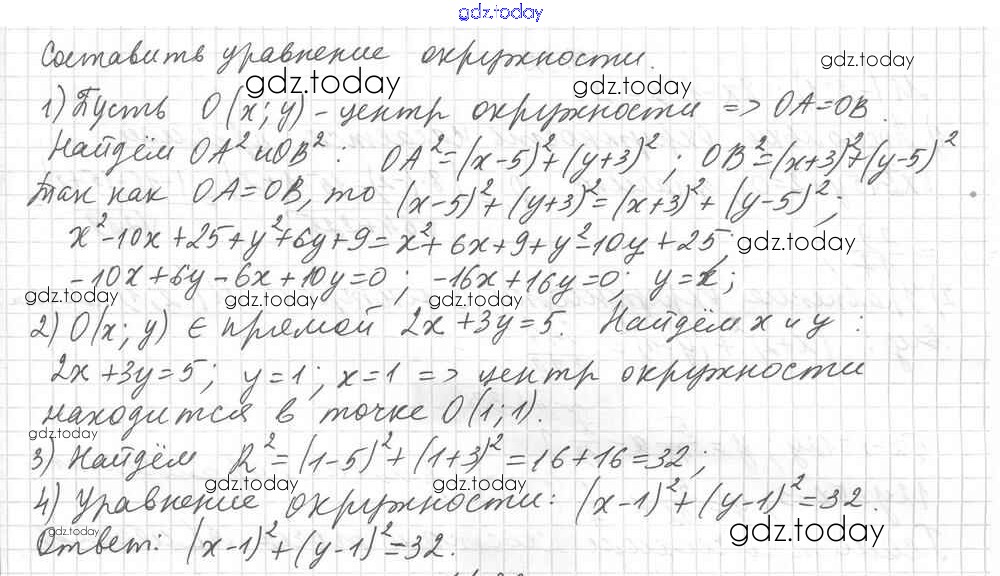 gdz.today
Составить уравнение окружности.
gdz.today gdz.today gdz.today
1) Пусть O(x; y) – центр окружности => OA=OB.
Найдём OA² и OB²: OA²=(x-5)²+(y+3)²; OB²=(x+3)²+(y-5)²
Так как OA=OB, то (x-5)²+(y+3)²=(x+3)²+(y-5)²;
x²-10x+25+y²+6y+9=x²+6x+9+y²-10y+25;
gdz.today
-10x+6y-6x+10y=0; -16x+16y=0; y=x;
gdz.today gdz.today gdz.today
2) O(x; y) ∈ прямой 2x+3y=5. Найдём x и y:
2x+3y=5; y=1; x=1 => центр окружности
находится в точке O(1;1).
gdz.today
3) Найдём R²=(1-5)²+(1+3)²=16+16=32;
gdz.today gdz.today
4) Уравнение окружности: (x-1)²+(y-1)²=32.
gdz.today gdz.today
Ответ: (x-1)²+(y-1)²=32.